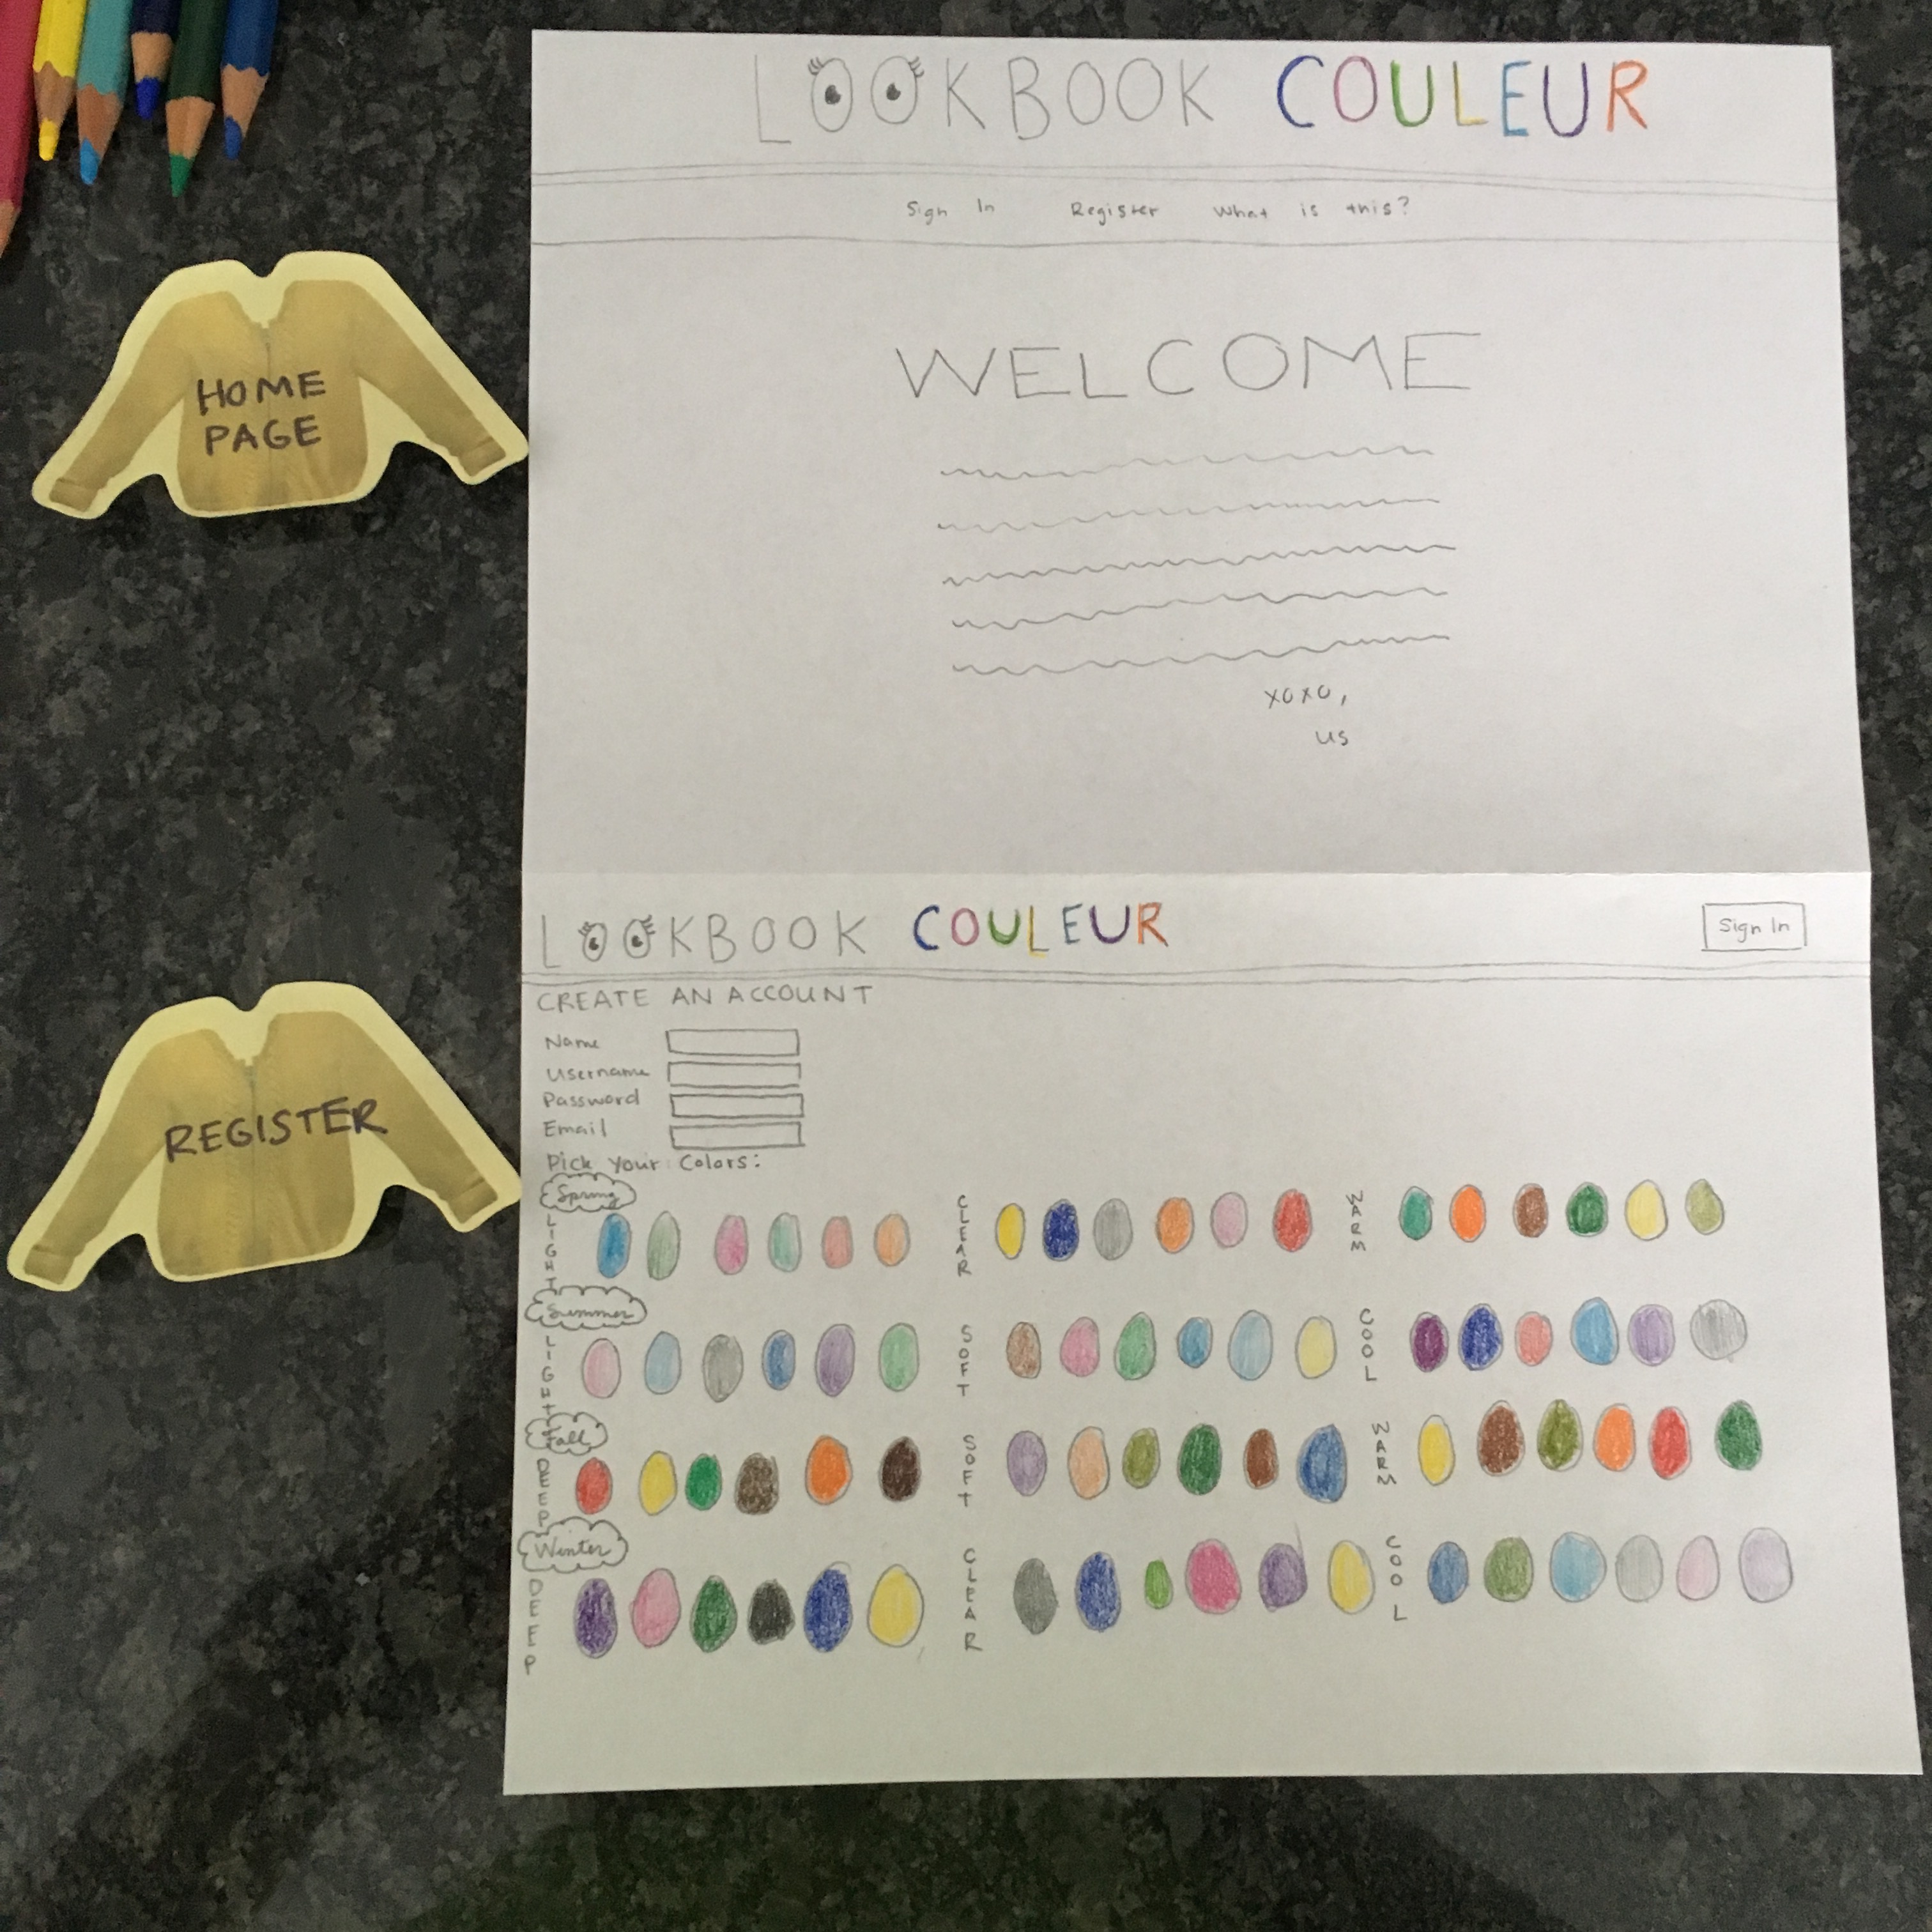 LOOKBOOK COULEUR
Sign In Register What is this?
HOME
PAGE
WELCOME
xoxo,
us
LOOKBOOK COULEUR
Sign In
CREATE AN ACCOUNT
Name
Username
Password
Email
REGISTER
Pick Your Colors:
Spring
LIGHT
CLEAR
WARM
Summer
LIGHT
SOFT
COOL
Fall
DEEP
SOFT
WARM
Winter
DEEP
CLEAR
COOL